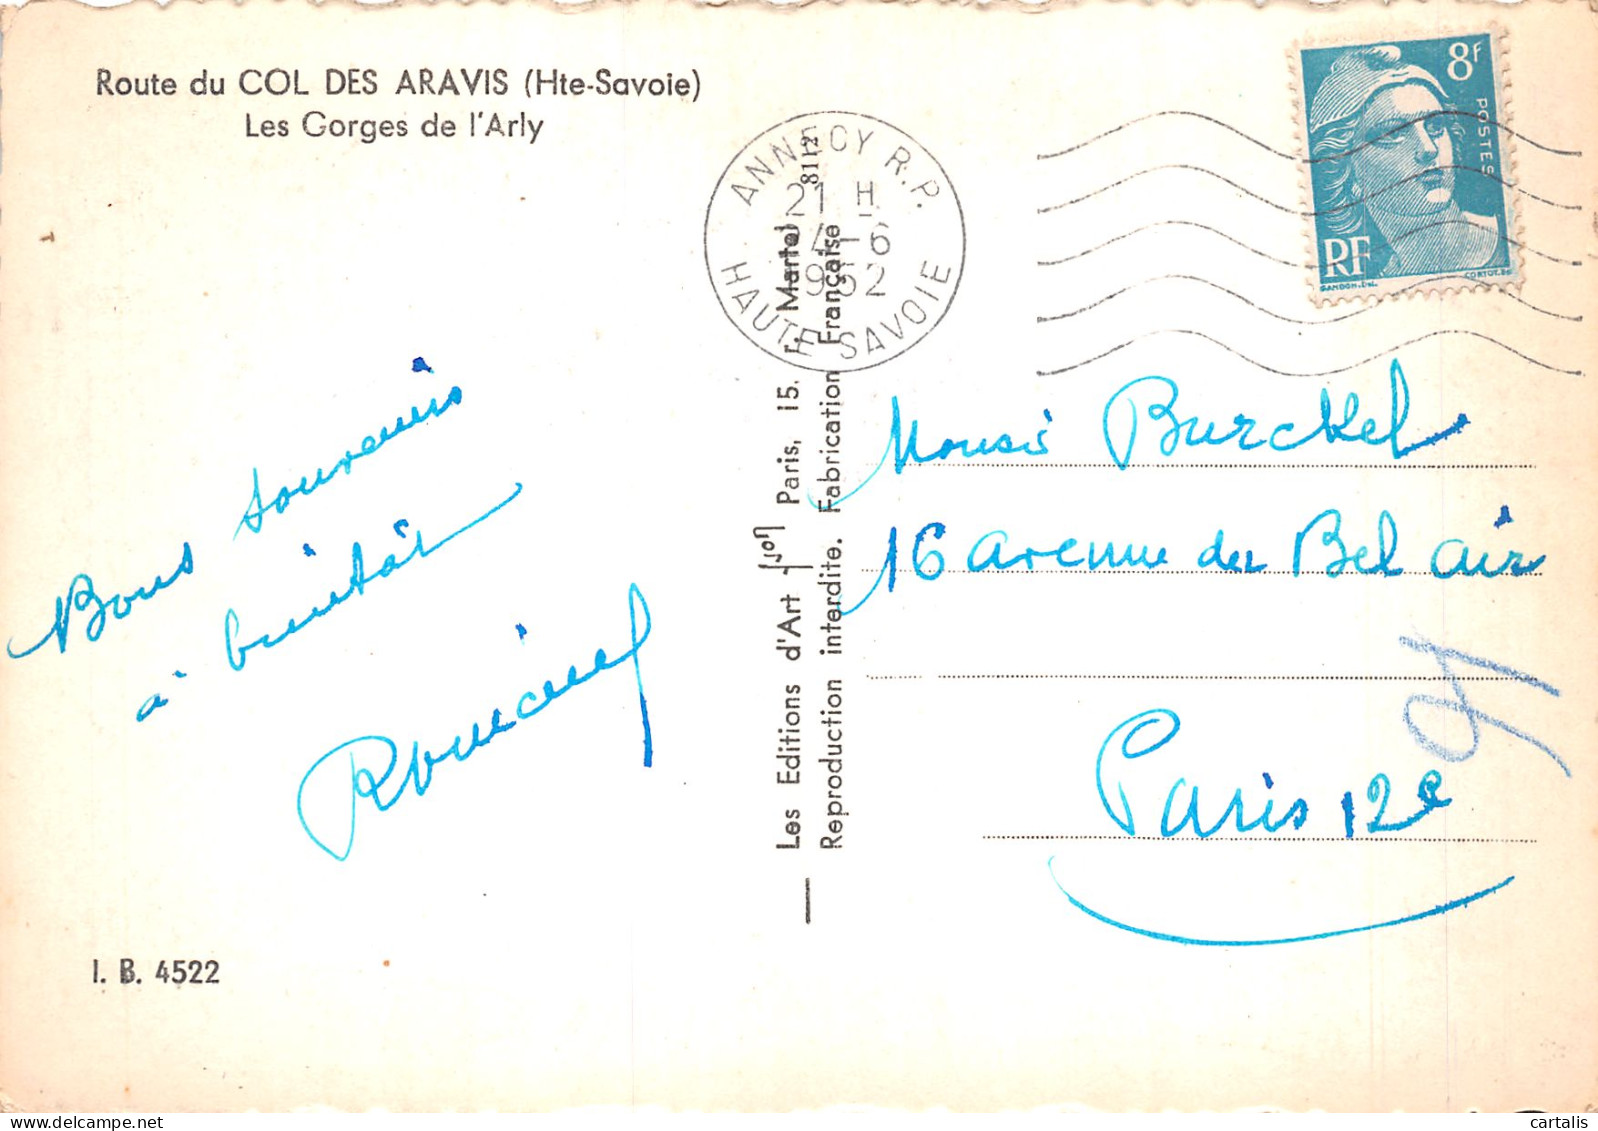 Route du COL DES ARAVIS (Hte-Savoie)
Les Gorges de l'Arly
ANNECY R.P.
21 H
4-6
1952
HAUTE SAVOIE
8F
POSTES
RF
GANDON. Del.
CORTOT. Sc
Bons souvenirs
à bientôt
Les Editions d'Art Yvon Paris, 15. r. Martel 8112
Reproduction interdite. Fabrication Française
Monsieur Burckel
16 avenue du Bel air
Paris 12e
I. B. 4522
cartalis